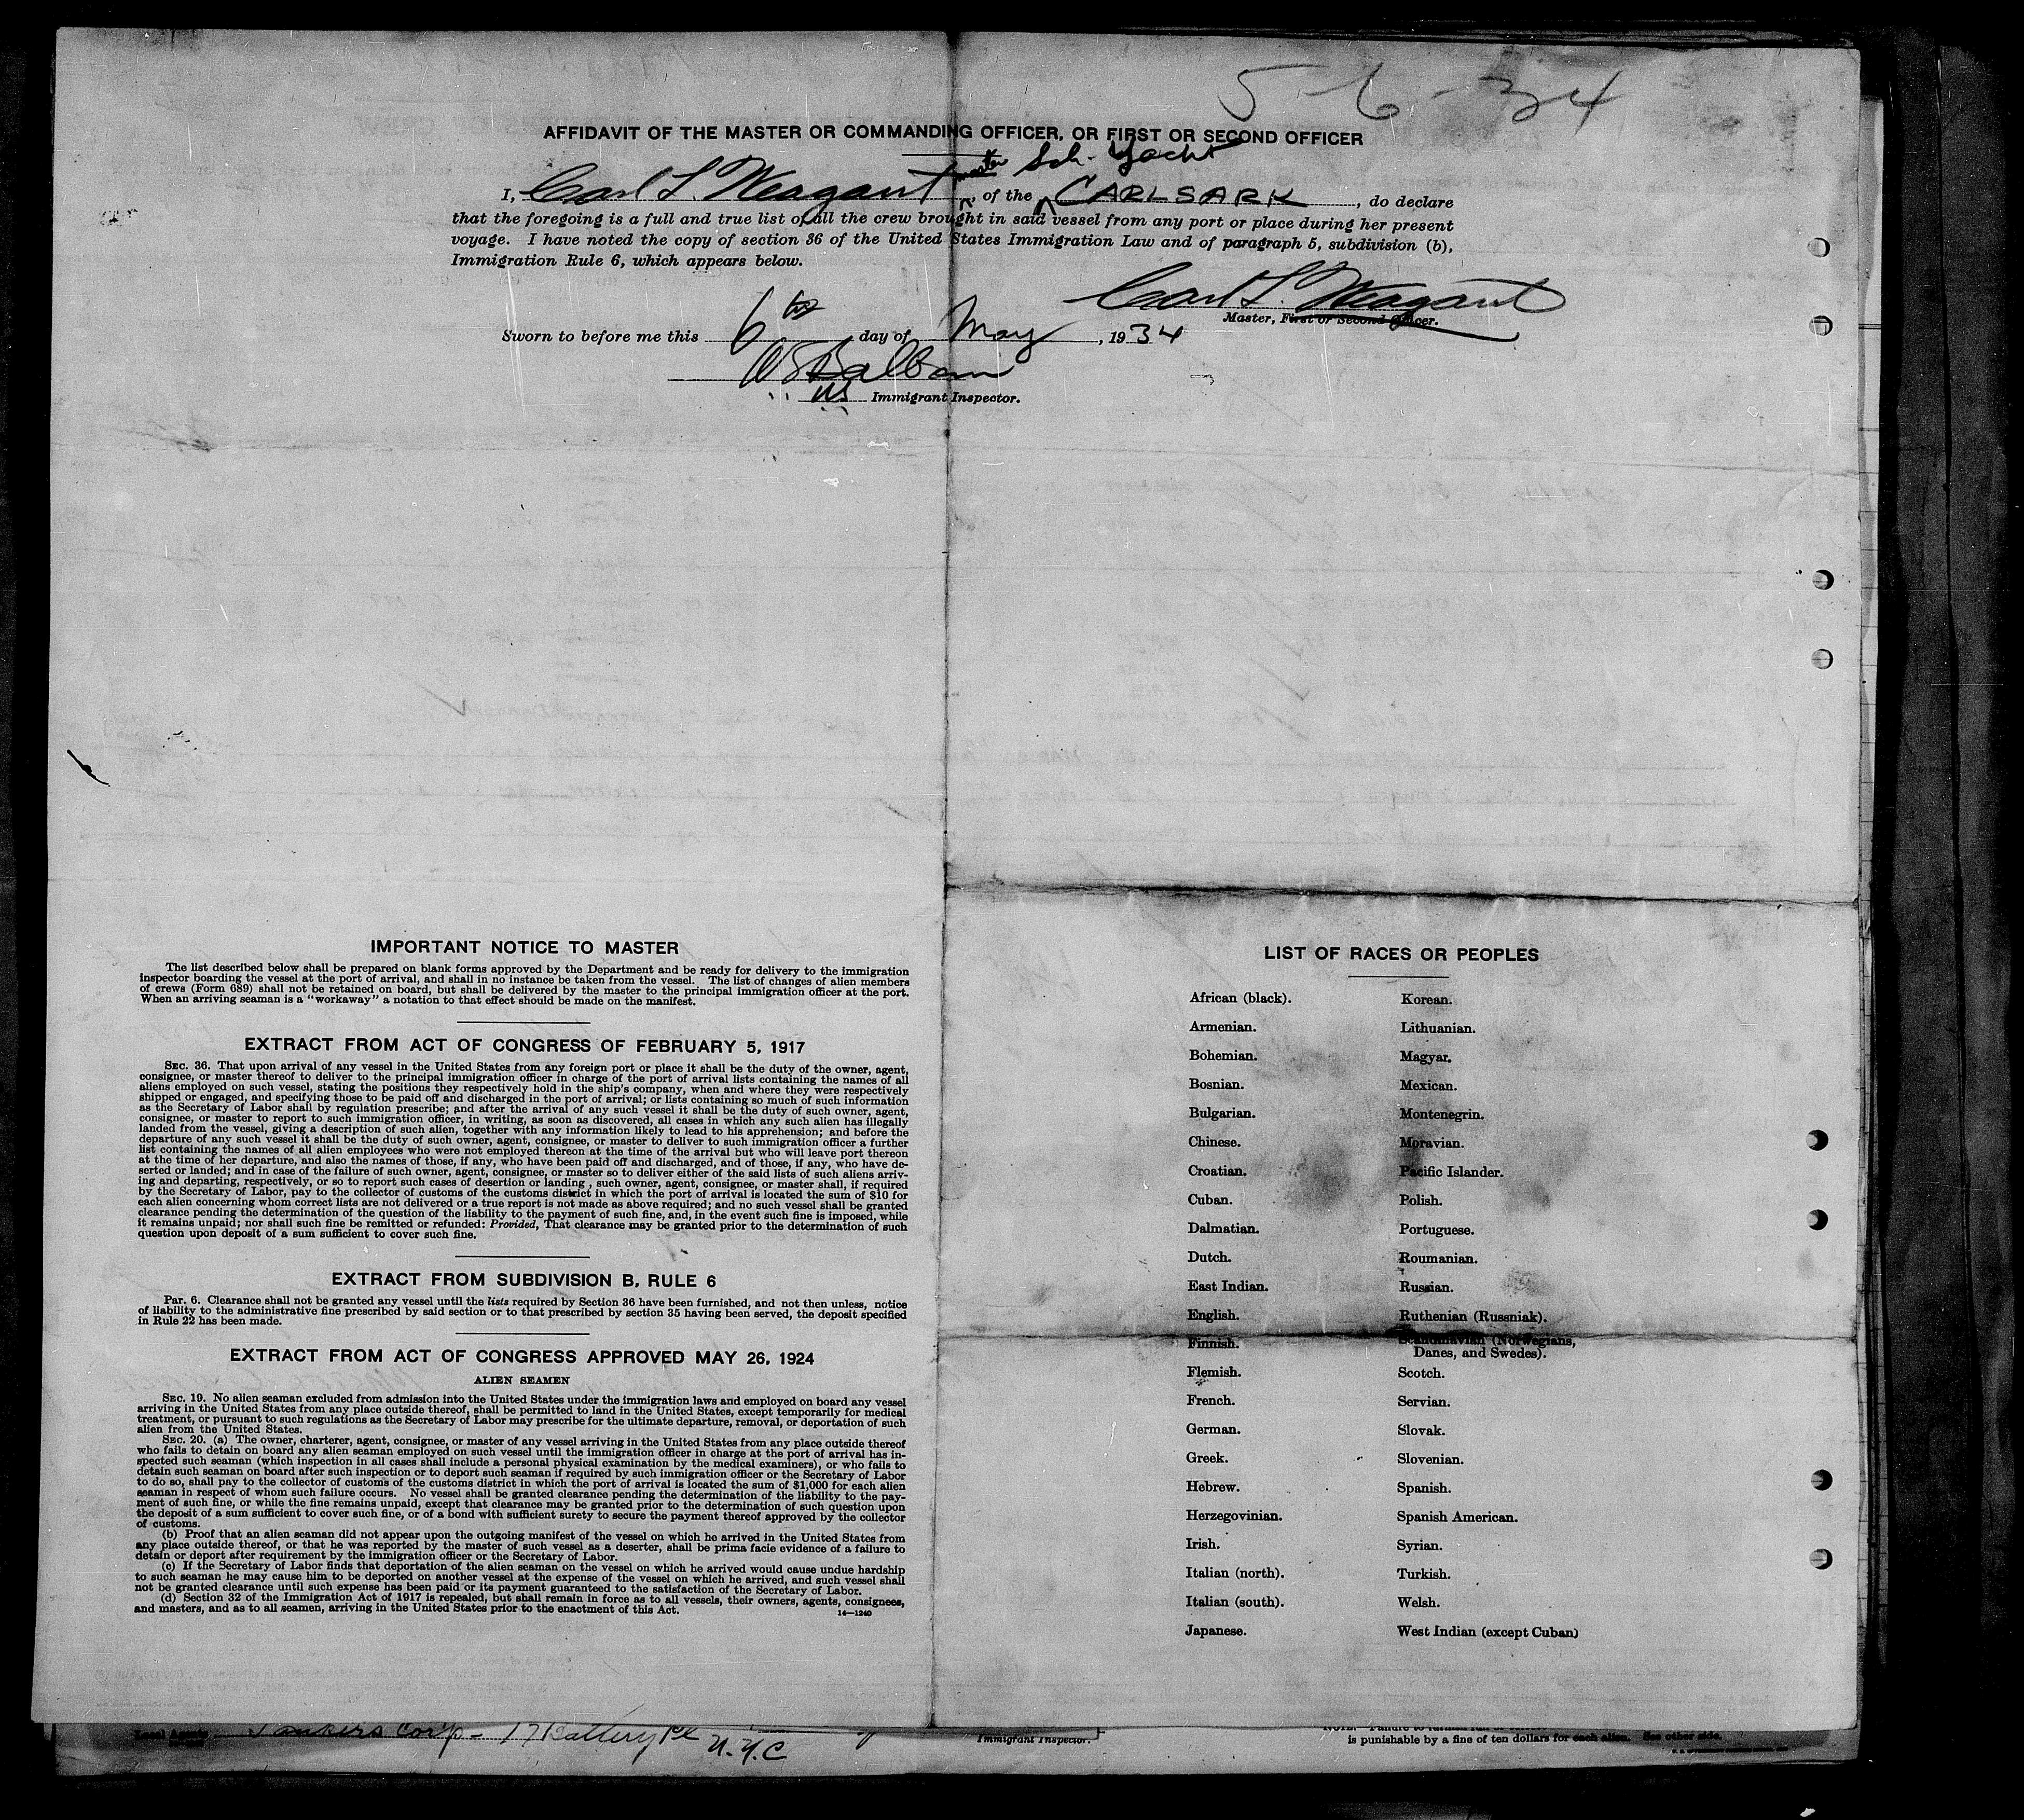 5-6-34
AFFIDAVIT OF THE MASTER OR COMMANDING OFFICER, OR FIRST OR SECOND OFFICER
master Sch. Yacht
I, Carl L. Weagant, of the CARLSARK, do declare
that the foregoing is a full and true list of all the crew brought in said vessel from any port or place during her present
voyage. I have noted the copy of section 36 of the United States Immigration Law and of paragraph 5, subdivision (b),
Immigration Rule 6, which appears below.
Carl L. Weagant
Master, First or Second Officer.
Sworn to before me this 6th day of May, 1934
Immigrant Inspector.
IMPORTANT NOTICE TO MASTER
The list described below shall be prepared on blank forms approved by the Department and be ready for delivery to the immigration
inspector boarding the vessel at the port of arrival, and shall in no instance be taken from the vessel. The list of changes of alien members
of crews (Form 689) shall not be retained on board, but shall be delivered by the master to the principal immigration officer at the port.
When an arriving seaman is a "workaway" a notation to that effect should be made on the manifest.
EXTRACT FROM ACT OF CONGRESS OF FEBRUARY 5, 1917
SEC. 36. That upon arrival of any vessel in the United States from any foreign port or place it shall be the duty of the owner, agent,
consignee, or master thereof to deliver to the principal immigration officer in charge of the port of arrival lists containing the names of all
aliens employed on such vessel, stating the positions they respectively hold in the ship's company, when and where they were respectively
shipped or engaged, and specifying those to be paid off and discharged in the port of arrival; or lists containing so much of such information
as the Secretary of Labor shall by regulation prescribe; and after the arrival of any such vessel it shall be the duty of such owner, agent,
consignee, or master to report to such immigration officer, in writing, as soon as discovered, all cases in which any such alien has illegally
landed from the vessel, giving a description of such alien, together with any information likely to lead to his apprehension; and before the
departure of any such vessel it shall be the duty of such owner, agent, consignee, or master to deliver to such immigration officer a further
list containing the names of all alien employees who were not employed thereon at the time of the arrival but who will leave port thereon
at the time of her departure, and also the names of those, if any, who have been paid off and discharged, and of those, if any, who have de-
serted or landed; and in case of the failure of such owner, agent, consignee, or master so to deliver either of the said lists of such aliens arriv-
ing and departing, respectively, or so to report such cases of desertion or landing , such owner, agent, consignee, or master shall, if required
by the Secretary of Labor, pay to the collector of customs of the customs district in which the port of arrival is located the sum of $10 for
each alien concerning whom correct lists are not delivered or a true report is not made as above required; and no such vessel shall be granted
clearance pending the determination of the question of the liability to the payment of such fine, and, in the event such fine is imposed, while
it remains unpaid; nor shall such fine be remitted or refunded: Provided, That clearance may be granted prior to the determination of such
question upon deposit of a sum sufficient to cover such fine.
EXTRACT FROM SUBDIVISION B, RULE 6
PAR. 6. Clearance shall not be granted any vessel until the lists required by Section 36 have been furnished, and not then unless, notice
of liability to the administrative fine prescribed by said section or to that prescribed by section 35 having been served, the deposit specified
in Rule 22 has been made.
EXTRACT FROM ACT OF CONGRESS APPROVED MAY 26, 1924
ALIEN SEAMEN
SEC. 19. No alien seaman excluded from admission into the United States under the immigration laws and employed on board any vessel
arriving in the United States from any place outside thereof, shall be permitted to land in the United States, except temporarily for medical
treatment, or pursuant to such regulations as the Secretary of Labor may prescribe for the ultimate departure, removal, or deportation of such
alien from the United States.
SEC. 20. (a) The owner, charterer, agent, consignee, or master of any vessel arriving in the United States from any place outside thereof
who fails to detain on board any alien seaman employed on such vessel until the immigration officer in charge at the port of arrival has in-
spected such seaman (which inspection in all cases shall include a personal physical examination by the medical examiners), or who fails to
detain such seaman on board after such inspection or to deport such seaman if required by such immigration officer or the Secretary of Labor
to do so, shall pay to the collector of customs of the customs district in which the port of arrival is located the sum of $1,000 for each alien
seaman in respect of whom such failure occurs. No vessel shall be granted clearance pending the determination of the liability to the pay-
ment of such fine, or while the fine remains unpaid, except that clearance may be granted prior to the determination of such question upon
the deposit of a sum sufficient to cover such fine, or of a bond with sufficient surety to secure the payment thereof approved by the collector
of customs.
(b) Proof that an alien seaman did not appear upon the outgoing manifest of the vessel on which he arrived in the United States from
any place outside thereof, or that he was reported by the master of such vessel as a deserter, shall be prima facie evidence of a failure to
detain or deport after requirement by the immigration officer or the Secretary of Labor.
(c) If the Secretary of Labor finds that deportation of the alien seaman on the vessel on which he arrived would cause undue hardship
to such seaman he may cause him to be deported on another vessel at the expense of the vessel on which he arrived, and such vessel shall
not be granted clearance until such expense has been paid or its payment guaranteed to the satisfaction of the Secretary of Labor.
(d) Section 32 of the Immigration Act of 1917 is repealed, but shall remain in force as to all vessels, their owners, agents, consignees,
and masters, and as to all seamen, arriving in the United States prior to the enactment of this Act.
14—1240
LIST OF RACES OR PEOPLES
African (black).
Armenian.
Bohemian.
Bosnian.
Bulgarian.
Chinese.
Croatian.
Cuban.
Dalmatian.
Dutch.
East Indian.
English.
Finnish.
Flemish.
French.
German.
Greek.
Hebrew.
Herzegovinian.
Irish.
Italian (north).
Italian (south).
Japanese.
Korean.
Lithuanian.
Magyar.
Mexican.
Montenegrin.
Moravian.
Pacific Islander.
Polish.
Portuguese.
Roumanian.
Russian.
Ruthenian (Russniak).
Scandinavian (Norwegians,
Danes, and Swedes).
Scotch.
Servian.
Slovak.
Slovenian.
Spanish.
Spanish American.
Syrian.
Turkish.
Welsh.
West Indian (except Cuban)
Local Agents Tankers Corp - 17 Battery Pl N.Y.C
Immigrant Inspector.
is punishable by a fine of ten dollars for each alien. See other side.